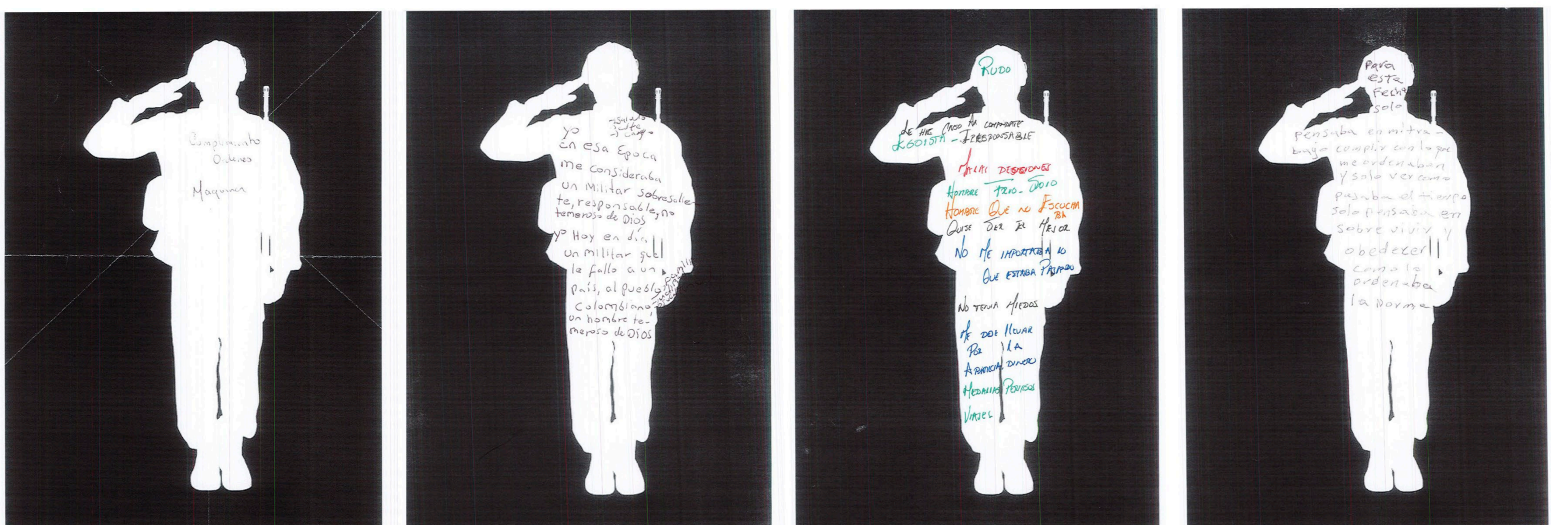 Cumplimiento
Ordenes
Maquina
yo
en esa Epoca
me consideraba
un Militar sobresalien
te, responsable, no
temeroso de Dios
yo Hoy en dia
un militar que
le fallo a un
país, al pueblo
Colombiano,
un hombre te-
meroso de Dios
RUDO
LE HICE CASO MI COMANDANTE
EGOISTA - IRRESPONSABLE
MALAS DESICIONES
HOMBRE FRIO - SOLO
HOMBRE QUE NO ESCUCHA
BA
QUISE SER EL MEJOR
NO ME IMPORTABA LO
QUE ESTABA PASANDO
NO TENIA MIEDOS
ME DEJE LLEVAR
POR LA
DINERO
MEDALLAS PERMISOS
VIAJES
para
esta
fecha
solo
pensaba en mi tra-
bajo cumplir con lo que
me ordenaban
y solo ver como
pasaba el tiempo
solo pensaba en
sobre vivir y
obedecer
como lo
ordenaba
la norma